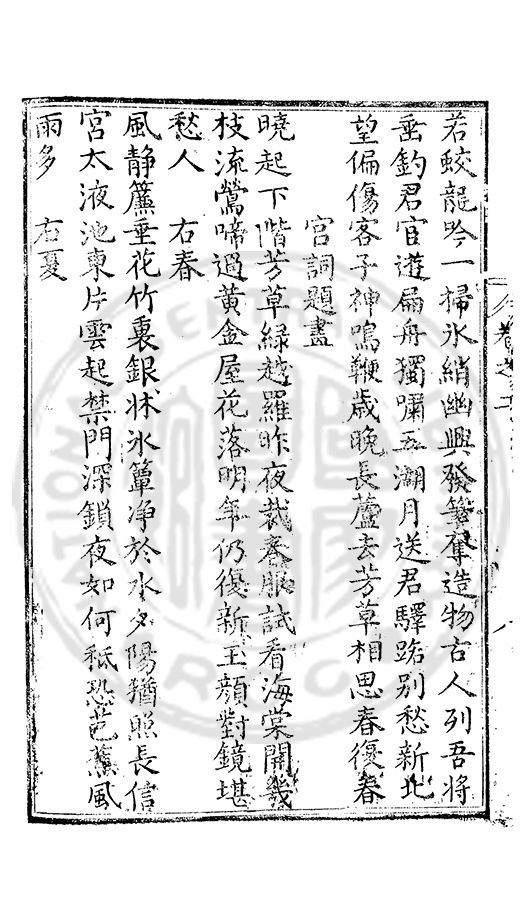 若蛟龍吟一掃氷綃幽興發筆奪造物古人列吾將
垂釣君官遊扁舟獨嘯五湖月送君驛路别愁新北
望偏傷客子神鳴鞭歲晩長蘆去芳草相思春復春
宫詞題畵
曉起下階芳草緑越羅昨夜裁春服試看海棠開幾
枝流鶯啼過黄金屋花落明年仍復新玉顔對鏡堪
愁人 右春
風静簾垂花竹裏銀牀氷簟净於水夕陽猶照長信
宫太液池東片雲起禁門深鎖夜如何秖恐芭蕉風
雨多 右夏
卷之二